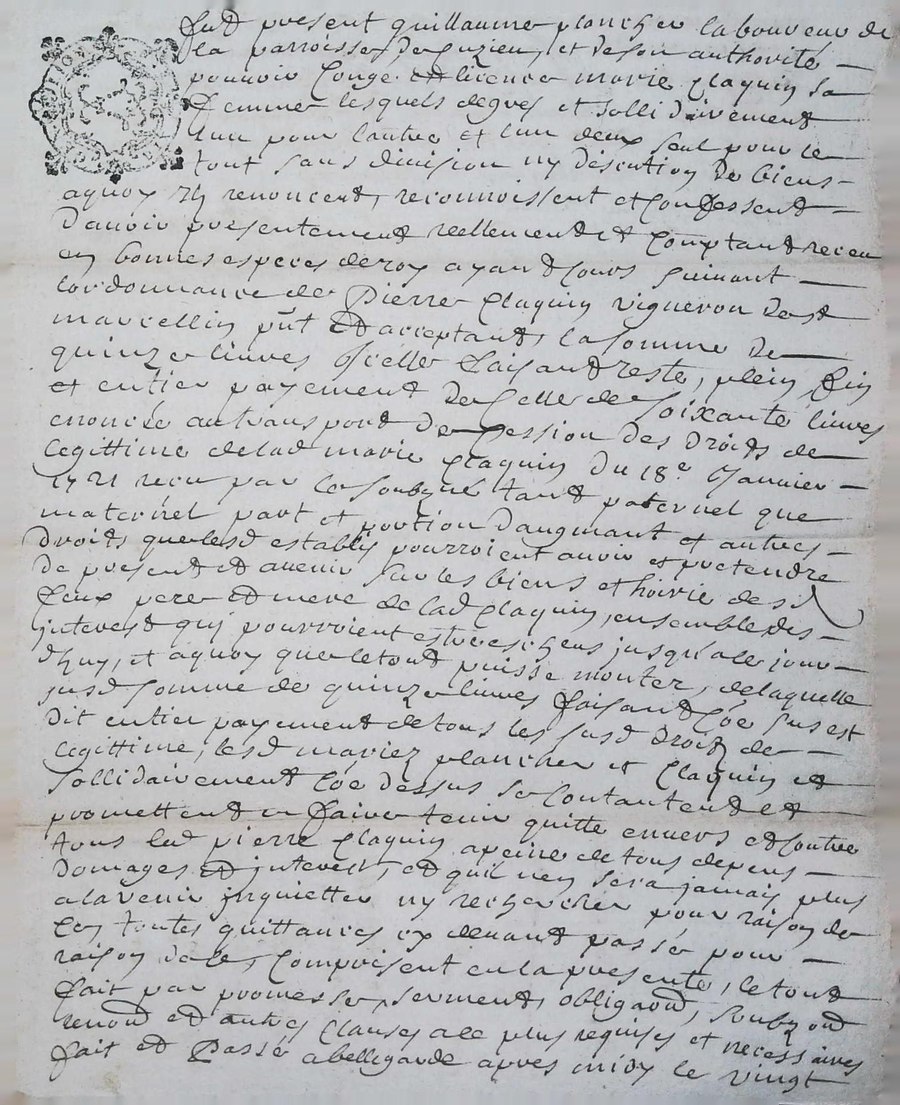 fut present guillaume plancher laboureur de
la parroisse de Cuzieu, et de son authorité
pouvoir Conge et licence marie Claquin sa
femme lesquels de gres et sollidairement
lun pour lautre et lun deux seul pour le
tout sans division ny discution de biens
aquoy ils renoncent, reconnoissent et Confessent
davoir presentement reellement et Comptant receu
en bonnes especes de roy ayant Cours suivant
lordonnance de Pierre Claquin vigneron de st
marcellin pnt et acceptant, la somme de
quinze livres Icelle faisant reste, plein fin
et entier payement de Celle de soixante livres
enoncée au transport de Cession des droits de
Legittime de lad marie Claquin du 18e Janvier
1721 receu par le soubzne tant paternel que
maternel part et portion daugmant et autres
droits que lesd establis pourroient avoir et pretendre
de present et avenir sur les biens et hoirie desd
feux pere et mere de lad Claquin, ensemble des
interest qui pourroient estre escheus jusqu a le jour
dhuy, et aquoy que le tout puisse monter, de laquelle
susd somme de quinze livres faisant Coe sus est
dit entier payement de tous les susd droits de
Legittime, lesd mariez plancher et Claquin et
sollidairement Coe dessus se Contantent et
promettent en faire tenir quitte envers et Contre
tous led pierre Claquin apeine de tous depens
domages et interest, et quil nen sera jamais plus
alavenir inquietter ny rechercher pour raison de
Ce, toutes quittances cy devant passée pour
raison de ce, Comprisent en la presente, le tout
fait par promesse, serment, obligaon, soubzon
renon et autres Clauses a ce plus requises et necessaires
fait et Passé a bellegarde apres midy le vingt